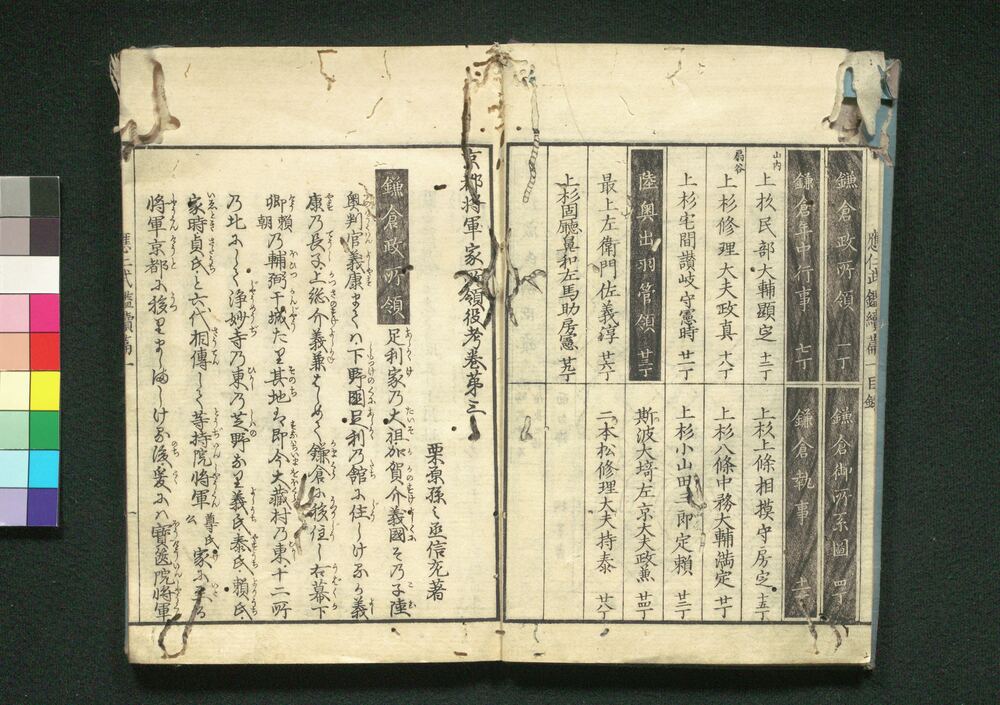 應仁武鑑續篇一目録
鎌倉政所領 一丁
鎌倉御所系圖 四丁
鎌倉年中行事 七丁
鎌倉執事 十一丁
山内
上杉民部大輔顯定 十二丁
上杉上條相摸守房定 十五丁
扇谷
上杉修理大夫政真 十八丁
上杉八條中務大輔満定 廿丁
上杉宅間讃岐守憲時 廿一丁
上杉小山田三郎定頼 廿二丁
陸奥出羽管領 廿三丁
斯波大埼左京大夫政兼 廿四丁
最上左衛門佐義淳 廿六丁
二本松修理大夫持泰 廿八丁
上杉固廳鼻和左馬助房憲 廿九丁
京都将軍家所領役考巻第三
栗原孫之丞信充著
鎌倉政所領
足利家乃大祖加賀介義國その子陸
奥判官義康までハ下野國足利乃舘に住しけるが義
康乃長子上総介義兼はじめて鎌倉に移住し右幕下
頼朝
卿乃輔弼干城たり其地は即今大蔵村乃東十二所
乃北にして浄妙寺乃東乃芝野なり義氏泰氏頼氏
家時貞氏と六代相傳して等持院将軍 尊氏公 家に至る
将軍京都に移りましましける後爰にハ寶篋院将軍